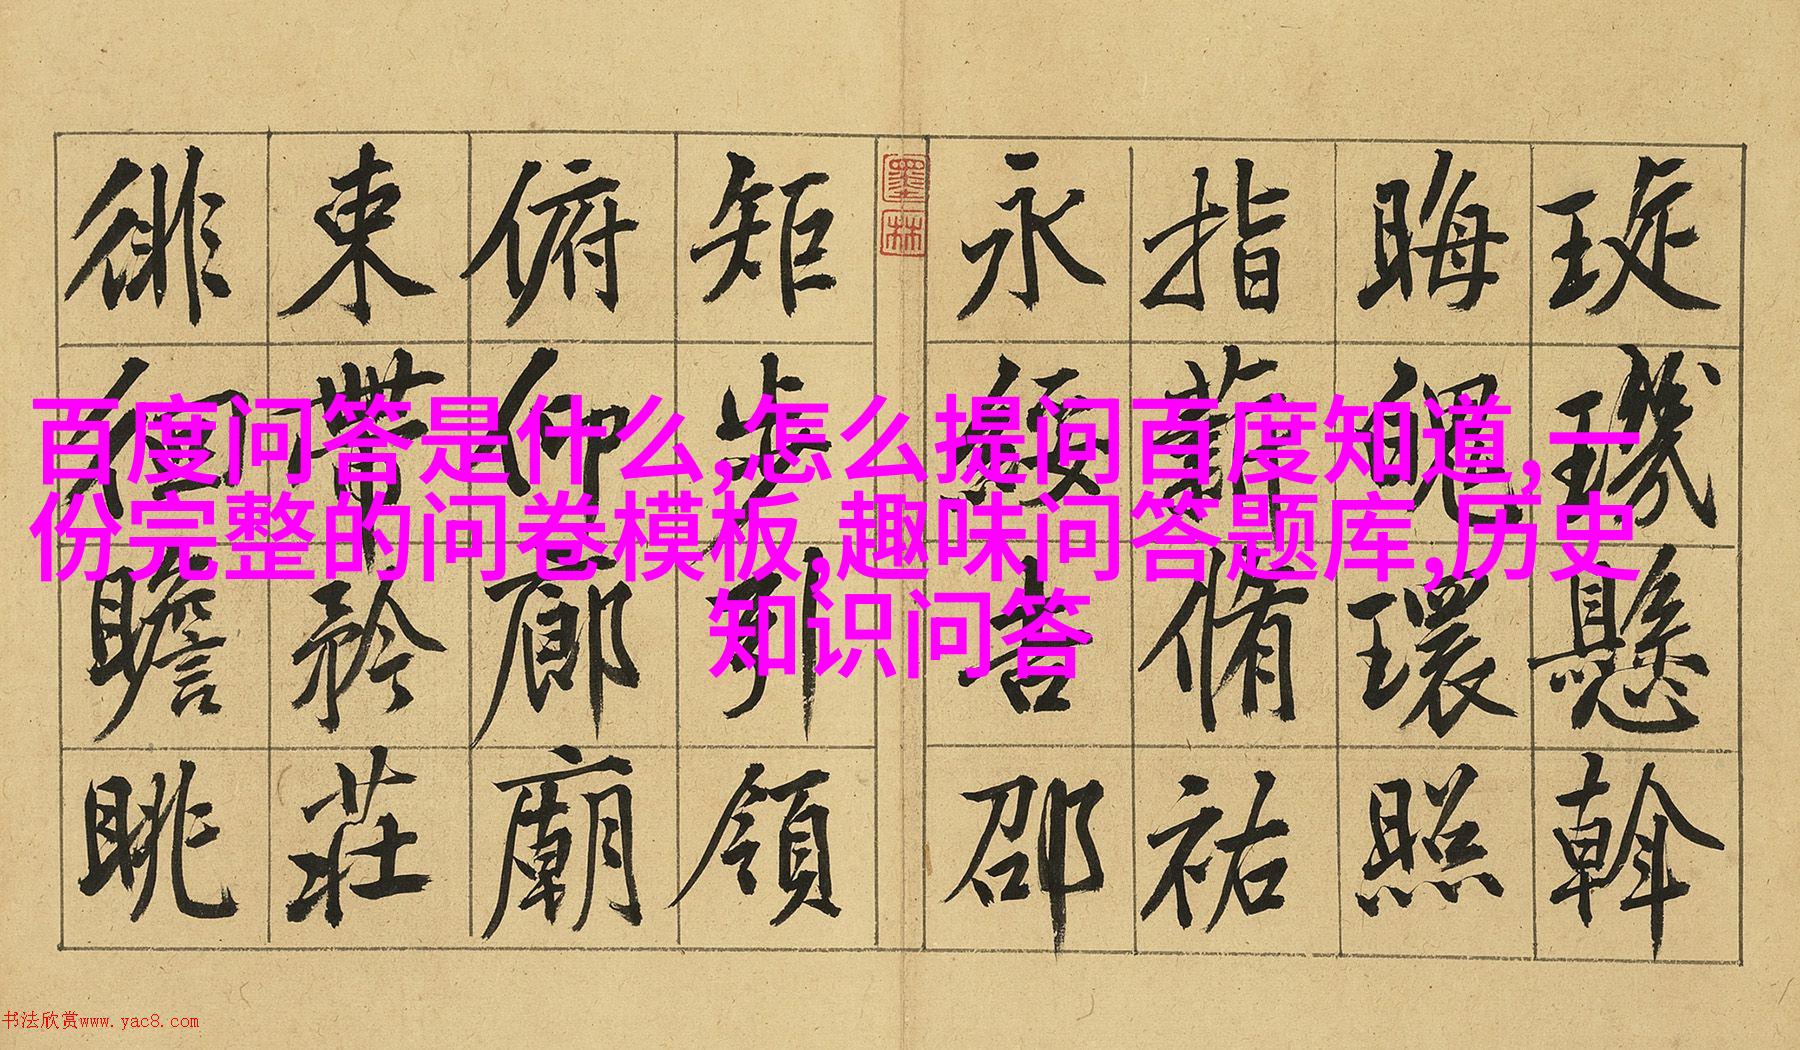 琁璣懸斡
晦魄環照
指薪脩祐
永綏吉邵
墨林
矩步引領
俯仰廊廟
束帶矜莊
徘徊瞻眺
百度问答是什么,怎么提问百度知道,一
份完整的问卷模板,趣味问答题库,历史
知识问答
书法欣赏www.yac8.com